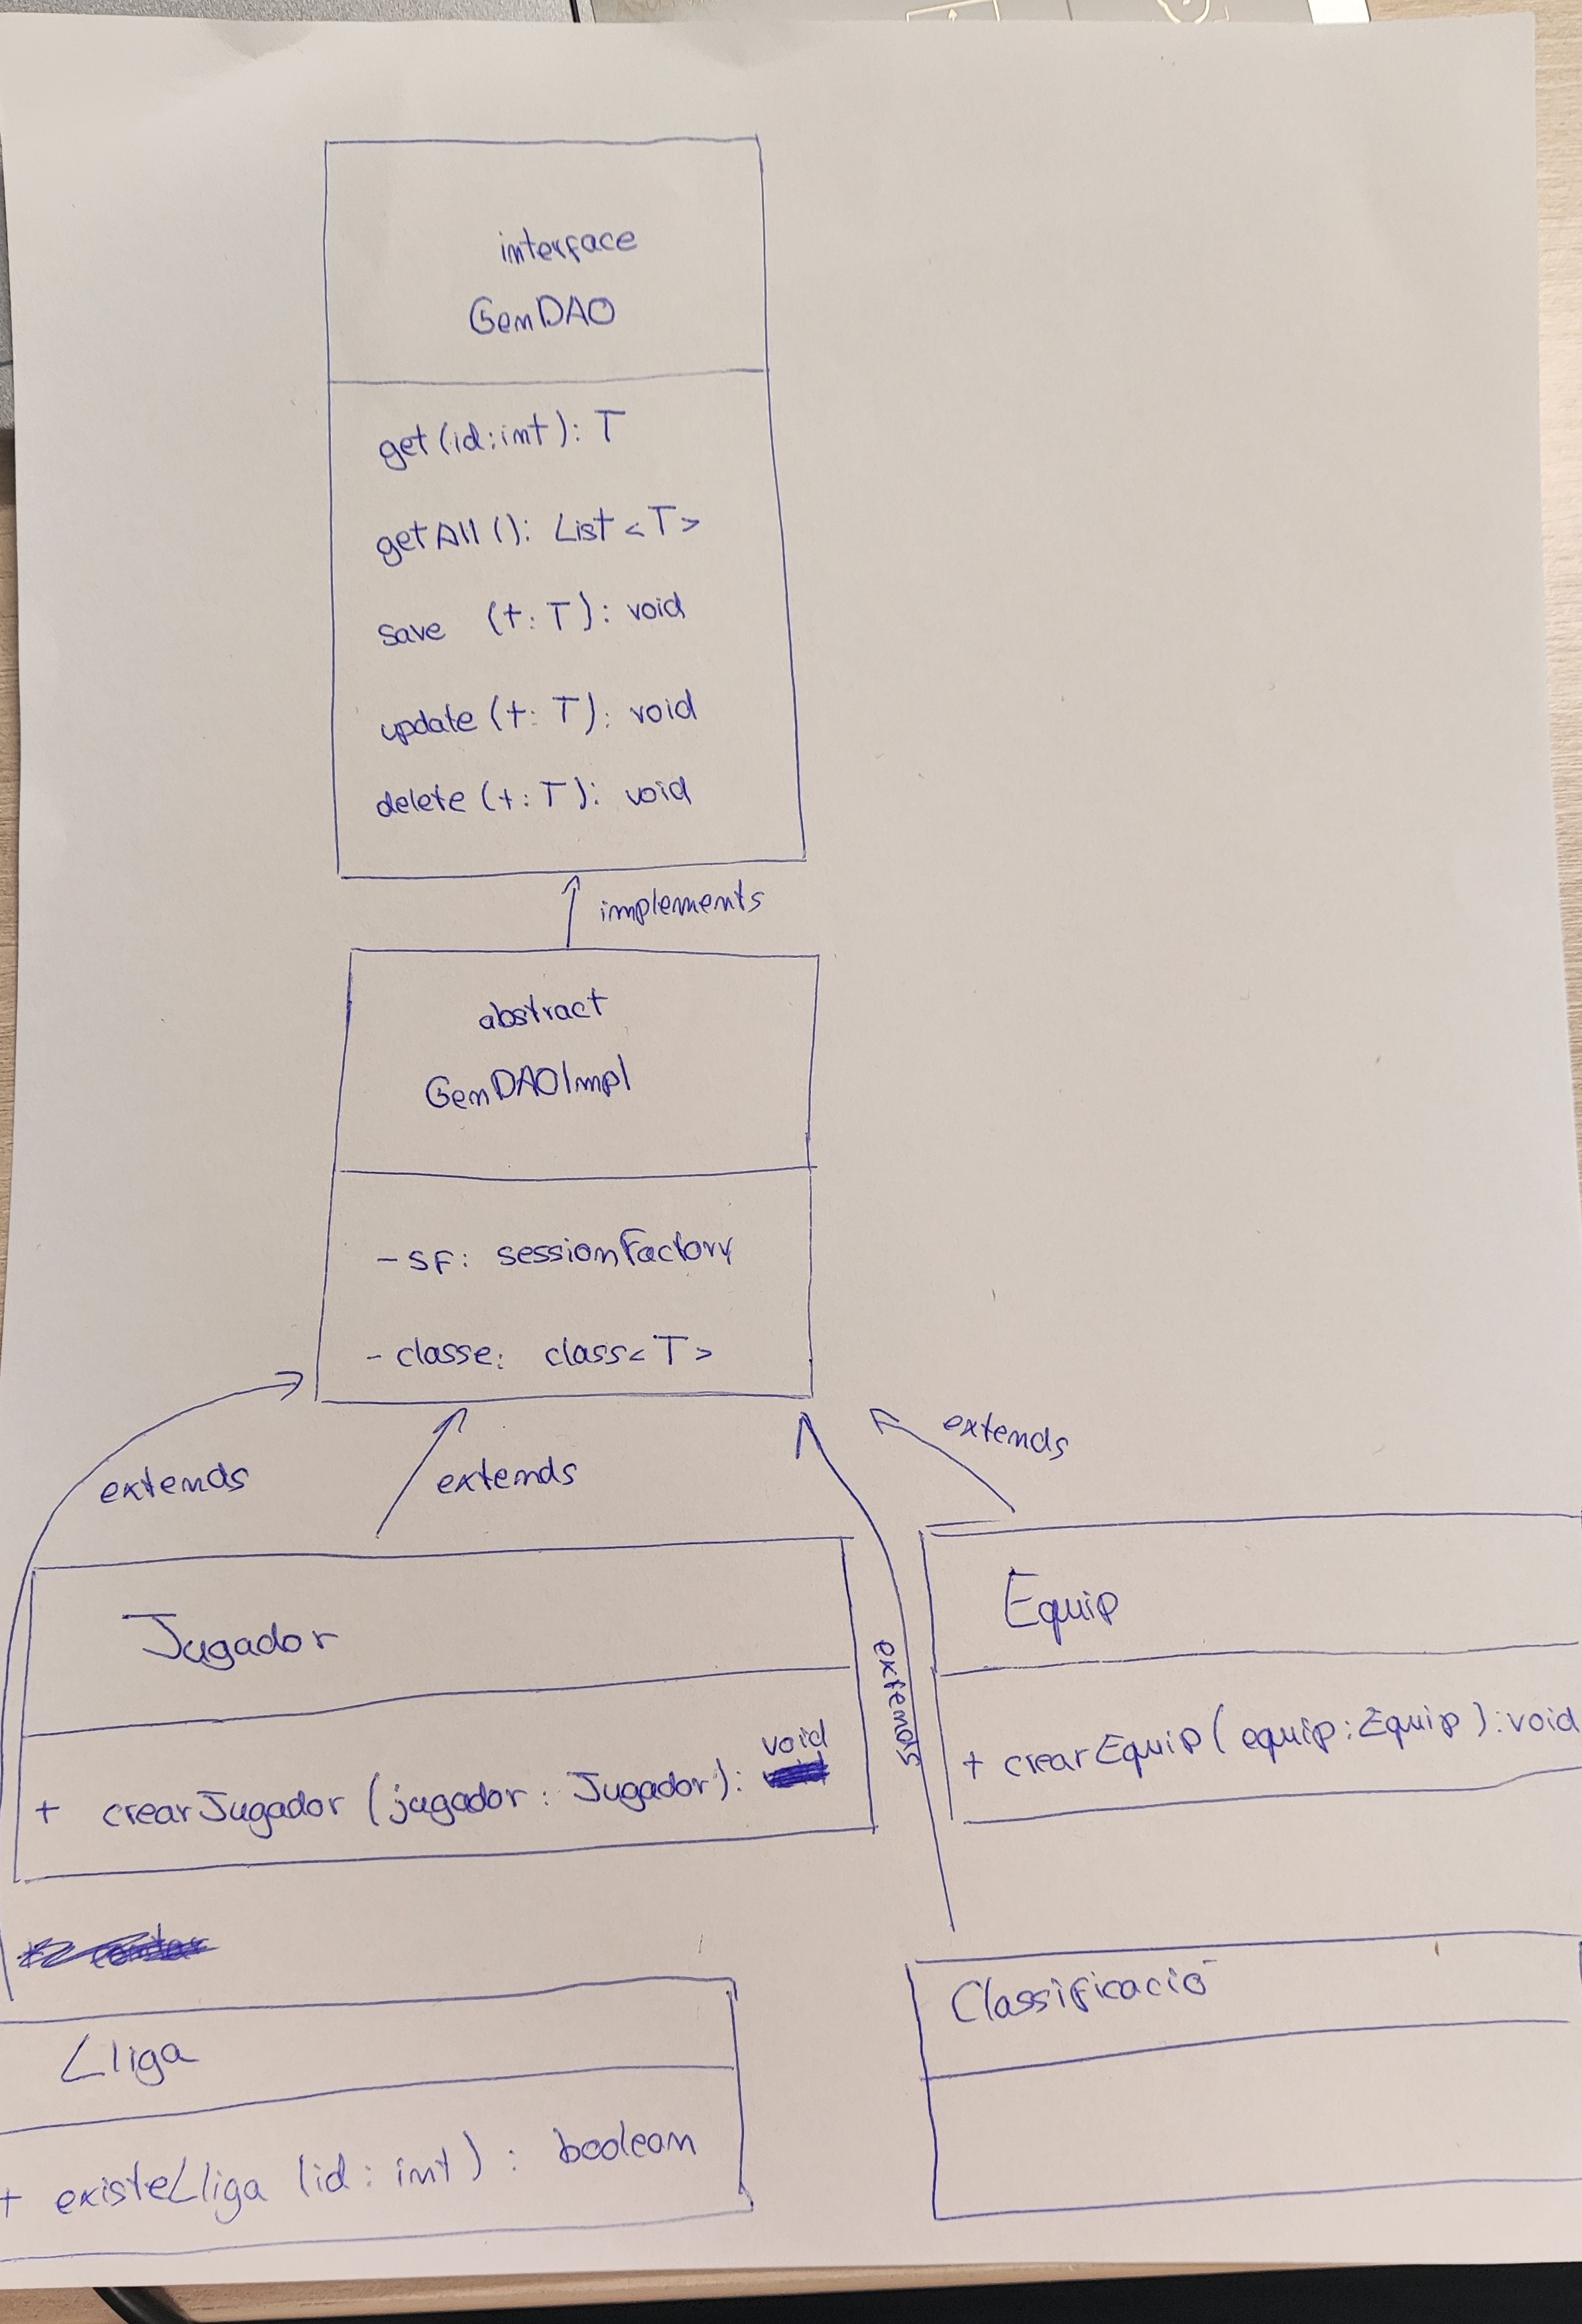 interface
GenDAO
get(id:int): T
getAll(): List<T>
save (t: T): void
update (t: T): void
delete (t: T): void
implements
abstract
GenDAOImpl
- SF: sessionFactory
- classe: class<T>
extends
extends
extends
extends
Jugador
+ crearJugador (jugador: Jugador): void
Equip
+ crearEquip (equip: Equip): void
Lliga
+ existeLliga (id: int): boolean
Classificació